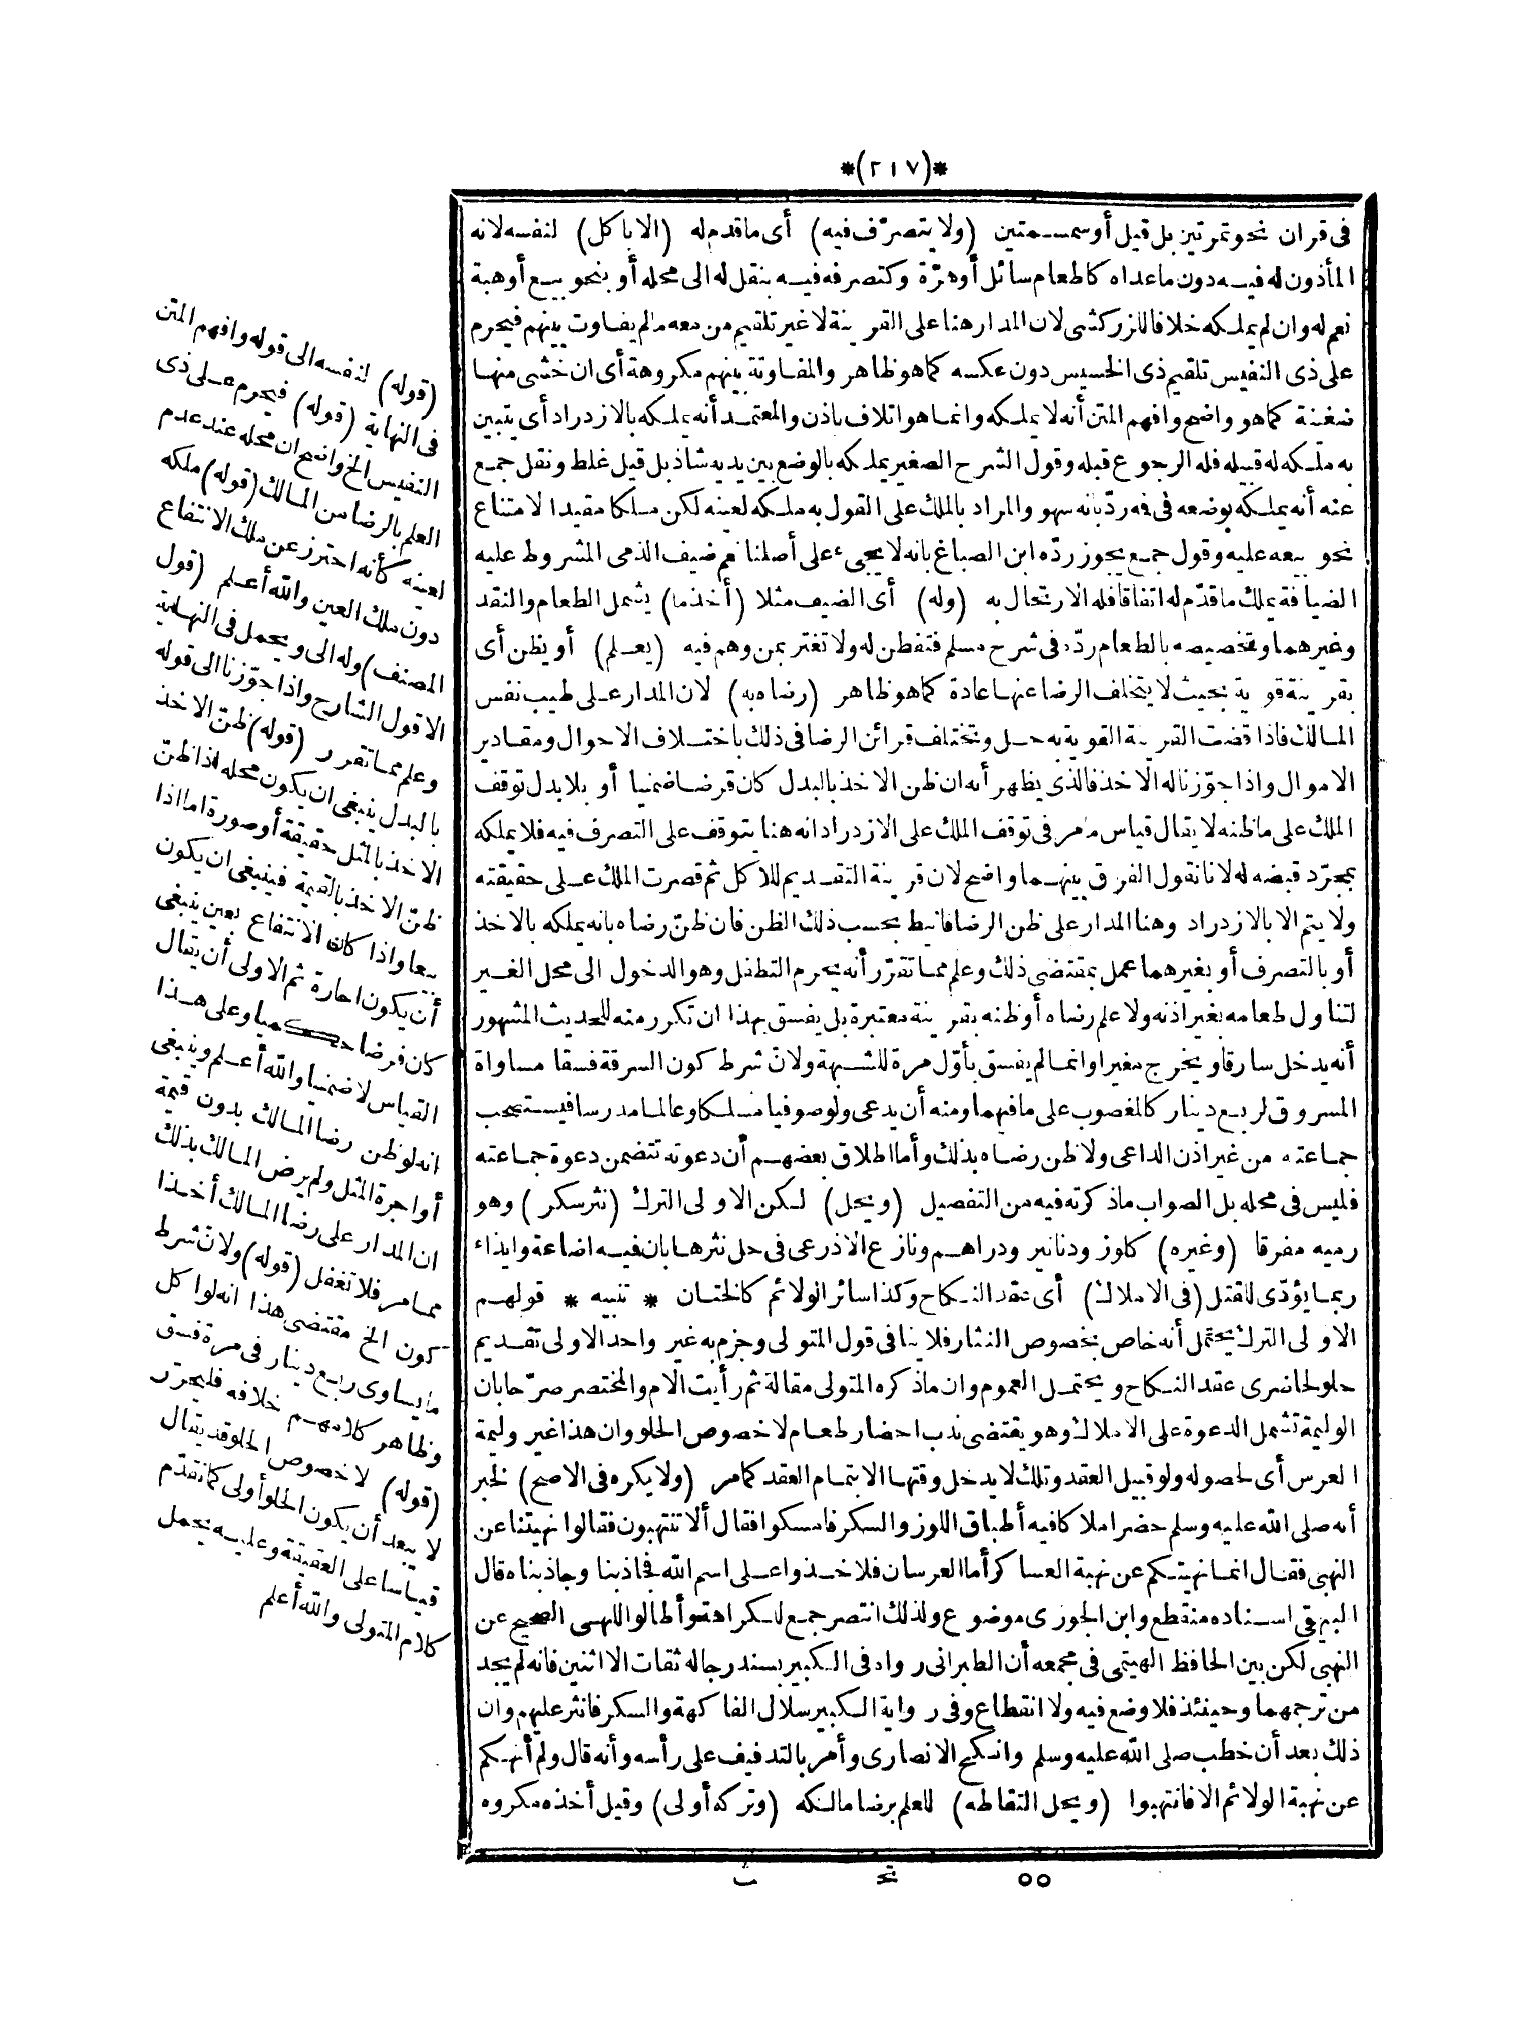 *(٢١٧)*
فى قران نحو تمرتين بل قيل أو سمسمتين (ولا يتصرّف فيه) أى ما قدم له (الا باكل) لنفسه لانه
المأذون له فيه دون ما عداه كاطعام سائل أو هرّة وكتصرفه فيه بنقل له الى محله أو بنحو بيع أو هبة
نعم له وان لم يملكه خلافا للزركشى لان المدار هنا على القرينة لا غير تلقيم من معه ما لم يفاوت بينهم فيحرم
على ذى النفيس تلقيم ذى الخسيس دون عكسه كما هو ظاهر والمفاوتة بينهم مكروهة أى ان خشى منها
ضغينة كما هو واضح وافهم المتن أنه لا يملكه وانما هو اتلاف باذن والمعتمد أنه يملكه بالازدراد أى يتبين
به ملكه له قبيله فله الرجوع قبله وقول الشرح الصغير يملكه بالوضع بين يديه شاذ بل قيل غلط ونقل جمع
عنه أنه يملكه بوضعه فى فه ردّ بانه سهو والمراد بالملك على القول به ملكه لعينه لكن ملكا مقيدا لامتناع
نحو بيعه عليه وقول جمع يجوز ردّه ابن الصباغ بانه لا يجىء على أصلنا نعم ضيف الذمى المشروط عليه
الضيافة يملك ما قدّم له اتفاقا فله الارتحال به (وله) أى الضيف مثلا (أخذ ما) يشمل الطعام والنقد
وغيرهما وتخصيصه بالطعام ردّه فى شرح مسلم فتفطن له ولا تغتر بمن وهم فيه (يعلم) أو يظن أى
بقرينة قوية بحيث لا يتخلف الرضا عنها عادة كما هو ظاهر (رضاه به) لان المدار على طيب نفس
المالك فاذا قضت القرينة القوية به حل وتختلف قرائن الرضا فى ذلك باختلاف الاحوال ومقادير
الاموال واذا جوّزنا له الاخذ فالذى يظهر أنه ان ظن الاخذ بالبدل كان قرضا ضمنيا أو بلا بدل توقف
الملك على ما ظنه لا يقال قياس ما مر فى توقف الملك على الازدراد انه هنا يتوقف على التصرف فيه فلا يملكه
بمجرّد قبضه له لانا نقول الفرق بينهما واضح لان قرينة التقديم للاكل ثم قصرت الملك على حقيقته
ولا يتم الا بالازدراد وهنا المدار على ظن الرضا فانيط بحسب ذلك الظن فان ظنّ رضاه بانه يملكه بالاخذ
أو بالتصرف أو بغيرهما عمل بمقتضى ذلك وعلم مما تقرّر أنه يحرم التطفل وهو الدخول الى محل الغير
لتناول طعامه بغير اذنه ولا علم رضاه أو ظنه بقرينة معتبرة بل يفسق بهذا ان تكرر منه للحديث المشهور
أنه يدخل سارقا ويخرج مغيرا وانما لم يفسق بأوّل مرة للشبهة ولان شرط كون السرقة فسقا مساواة
المسروق لربع دينار كالمغصوب على ما فيهما ومنه أن يدعى ولو صوفيا مسلكا وعالما مدرسا فيستصحب
جماعته من غير اذن الداعى ولا ظن رضاه بذلك وأما اطلاق بعضهم أن دعوته تتضمن دعوة جماعته
فليس فى محله بل الصواب ما ذكرته فيه من التفصيل (ويحل) لكن الاولى الترك (نثر سكر) وهو
رميه مفرقا (وغيره) كلوز ودنانير ودراهم ونازع الاذرعى فى حل نثرها بان فيه اضاعة وايذاء
ربما يؤدّى للقتل (فى الاملاك) أى عقد النكاح وكذا سائر الولائم كالختان * تنبيه * قولهم
الاولى الترك يحتمل أنه خاص بخصوص النثار فلا ينافى قول المتولى وجزم به غير واحد الاولى تقديم
حلو لحاضرى عقد النكاح ويحتمل العموم وان ما ذكره المتولى مقالة ثم رأيت الام والمختصر صرّحا بان
الوليمة تشمل الدعوة على الاملاك وهو يقتضى ندب احضار طعام لا خصوص الحلو وان هذا غير وليمة
العرس أى لحصوله ولو قبيل العقد وتلك لا يدخل وقتها الا بتمام العقد كما مر (ولا يكره فى الاصح) لخبر
أنه صلى الله عليه وسلم حضر املاكا فيه أطباق اللوز والسكر فامسكوا فقال ألا تنتهبون فقالوا نهيتنا عن
النهبى فقال انما نهيتكم عن نهبة العساكر أما العرسان فلا خذوا على اسم الله فجاذبنا وجاذبناه قال
البيهقى اسناده منقطع وابن الجوزى موضوع ولذلك انتصر جمع للكراهة وأطالوا للنهى الصحيح عن
النهبى لكن بين الحافظ الهيتمى فى مجمعه أن الطبرانى رواه فى الكبير بسند رجاله ثقات الا اثنين فانه لم يجد
من ترجمهما وحينئذ فلا وضع فيه ولا انقطاع وفى رواية الكبير سلال الفاكهة والسكر فانثر عليهم وان
ذلك بعد أن خطب صلى الله عليه وسلم وانكح الانصارى وأمر بالتدفيف على رأسه وأنه قال ولم أنهكم
عن نهبة الولائم الا فانتهبوا (ويحل التقاطه) للعلم برضا مالكه (وتركه أولى) وقيل أخذه مكروه
٥٥ تح ث
(قوله) لنفسه الى قوله وافهم المتن
فى النهاية (قوله) فيحرم على ذى
النفيس الخ واضح ان محله عند عدم
العلم بالرضا من المالك (قوله) ملكه
لعينه كأنه احترز عن ملك الانتفاع
دون ملك العين والله أعلم (قول
المصنف) وله الى ويحمل فى النهاية
الا قول الشارح واذا جوّزنا الى قوله
وعلم مما تقرر (قوله) ظنّ الاخذ
بالبدل ينبغى ان يكون محله اذا ظنّ
الاخذ بالمثل حقيقة أو صورة اما اذا
ظنّ الاخذ بالقيمة فينبغى ان يكون
بيعا واذا كان الانتفاع بعين ينبغى
أن يكون اجارة ثم الاولى أن يقال
كان قرضا حكميا وعلى هذا
القياس لا ضمنيا والله أعلم وينبغى
انه لو ظن رضا المالك بدون قيمة
أو اجرة المثل ولم يرض المالك بذلك
ان المدار على رضا المالك أخذا
مما مر فلا تغفل (قوله) ولان شرط
كون الخ مقتضى هذا انه لو اكل
ما يساوى ربع دينار فى مرة فسق
وظاهر كلامهم خلافه فليحرّر
(قوله) لا خصوص الحلو قد يقال
لا يبعد أن يكون الحلو أولى كما تقدّم
قياسا على العقيقة وعليه يحمل
كلام المتولى والله أعلم